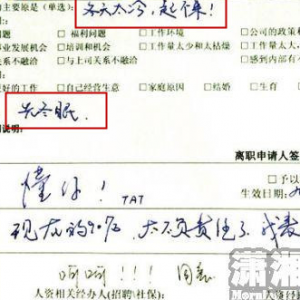 主要原是(单选): 冬天太冷,起不来!
福利问题 工作环境 公司的政策和
发展机会 培训和机会 工作量太少和太枯燥 工作量太大
关系不融洽 与上司关系不融洽 感到内部有不
好的工作 自己经营生意 家庭原因 结婚 生育
去冬眠.
说明:
离职申请人签
懂你! TAT
予以
生效日期:
现在的90后,太不负责任了
呵呵!!! 同意
人资相关经办人(招聘\社保):
潇湘